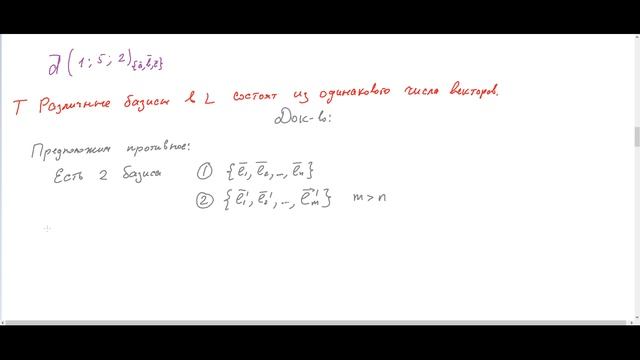 d̄ (1; 5; 2){ā,b̄,c̄}
Т Различные базисы в L состоят из одинакового числа векторов.
Док-во:
Предположим противное:
Есть 2 базиса ① {ē₁, ē₂, ..., ēₙ}
② {ē₁', ē₂', ..., ēₘ'} m>n